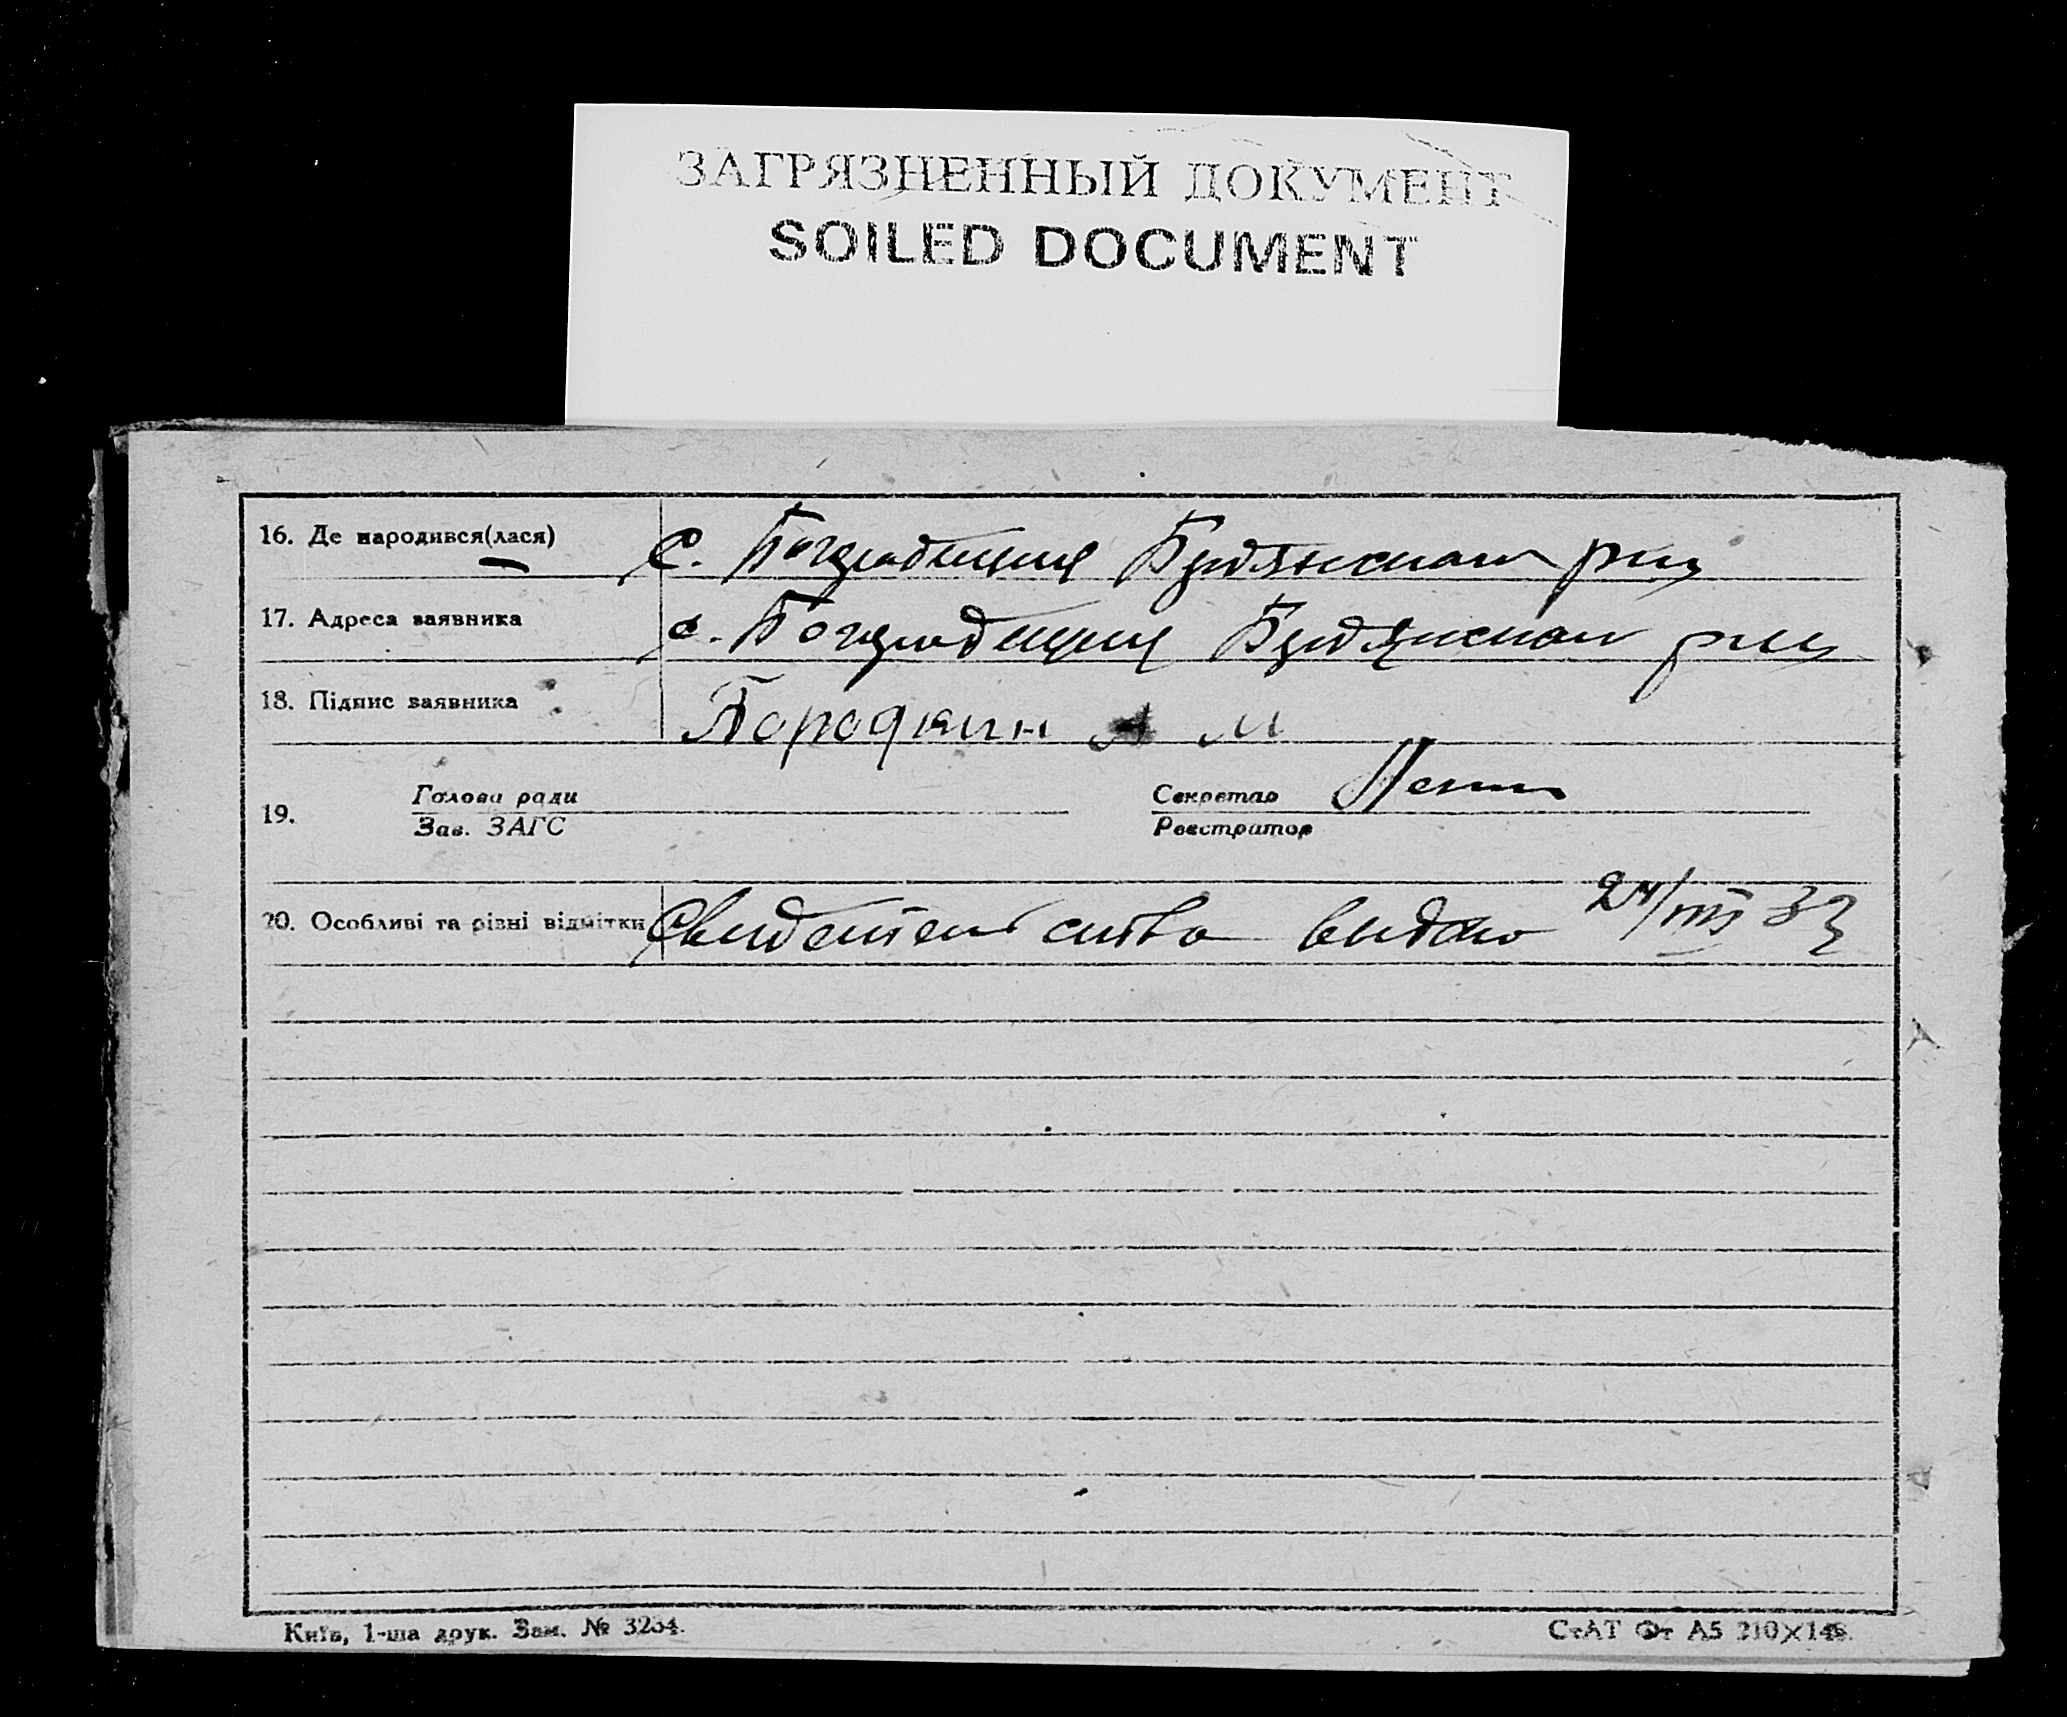 ЗАГРЯЗНЕННЫЙ ДОКУМЕНТ
SOILED DOCUMENT
16. Де народився(лася) с.
17. Адреса заявника с.
18. Підпис заявника Бородкин А М
Голова ради Секретар
19.
Зав. ЗАГС Реєстратор
20. Особливі та різні відмітки Свидетельство видано 24/III 33
Київ, 1-ша друк. Зам. № 3234. СтАТ Фт А5 210×148.